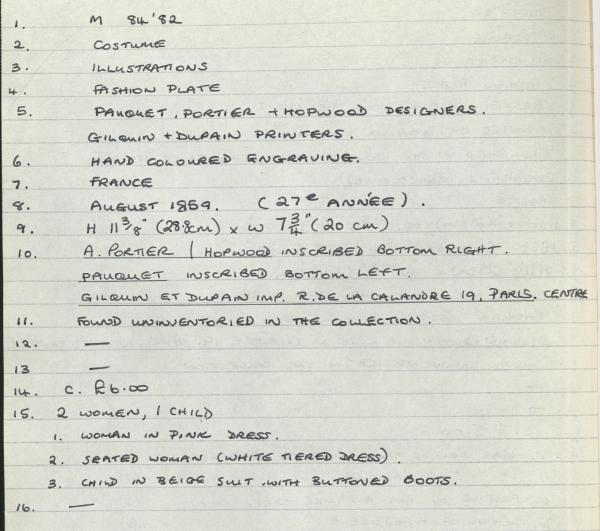 1. M 84'82
2. COSTUME
3. ILLUSTRATIONS
4. FASHION PLATE
5. PAUQUET, PORTIER + HOPWOOD DESIGNERS.
GILQUIN + DUPAIN PRINTERS.
6. HAND COLOURED ENGRAVING.
7. FRANCE
8. AUGUST 1859. (27e ANNÉE).
9. H 11 3/8" (28.8cm) x W 7 3/4" (20 cm)
10. A. PORTIER | HOPWOOD INSCRIBED BOTTOM RIGHT.
PAUQUET INSCRIBED BOTTOM LEFT.
GILQUIN ET DUPAIN IMP. R. DE LA CALANDRE 19, PARIS. CENTRE
11. FOUND UNINVENTORIED IN THE COLLECTION.
12. —
13 —
14. C. £6.00
15. 2 WOMEN, 1 CHILD
1. WOMAN IN PINK DRESS.
2. SEATED WOMAN (WHITE TIERED DRESS).
3. CHILD IN BEIGE SUIT WITH BUTTONED BOOTS.
16. —